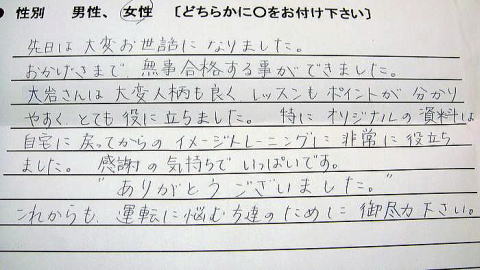 ● 性別　男性、女性　［どちらかに〇をお付け下さい］
先日は大変お世話になりました。
おかげさまで、無事合格する事ができました。
大岩さんは大変人柄も良く レッスンもポイントが分かり
やすく、とても役に立ちました。 特にオリジナルの資料は
自宅に戻ってからのイメージトレーニングに非常に役立ち
ました。 感謝の気持ちでいっぱいです。
"ありがとうございました。"
これからも、運転に悩む方達のために御尽力下さい。